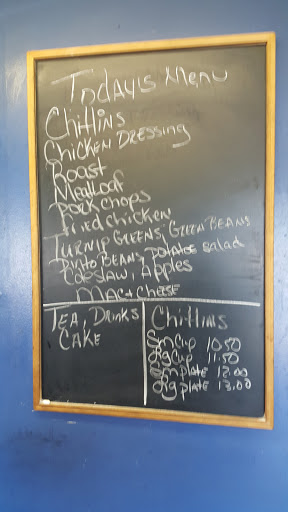 Today's Menu
Chitlins
Chicken Dressing
Roast
Meatloaf
Pork Chops
Fried Chicken
Turnip Greens, Green Beans
Pinto Beans, Potatoe Salad
Coleslaw, Apples
Mac & Cheese
Tea, Drinks
Cake
Chitlins
Sm Cup 10.50
Lg Cup 11.50
Sm plate 12.00
Lg plate 13.00